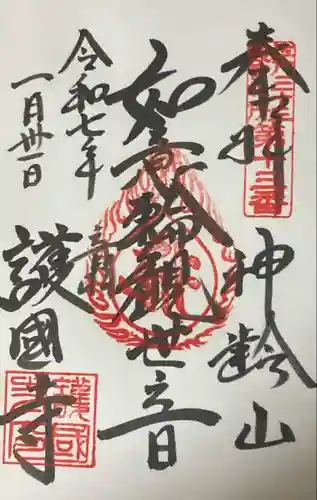 奉拝
新江戸第十三番
神齢山
如意輪観世音
令和七年
一月廿一日
護國寺